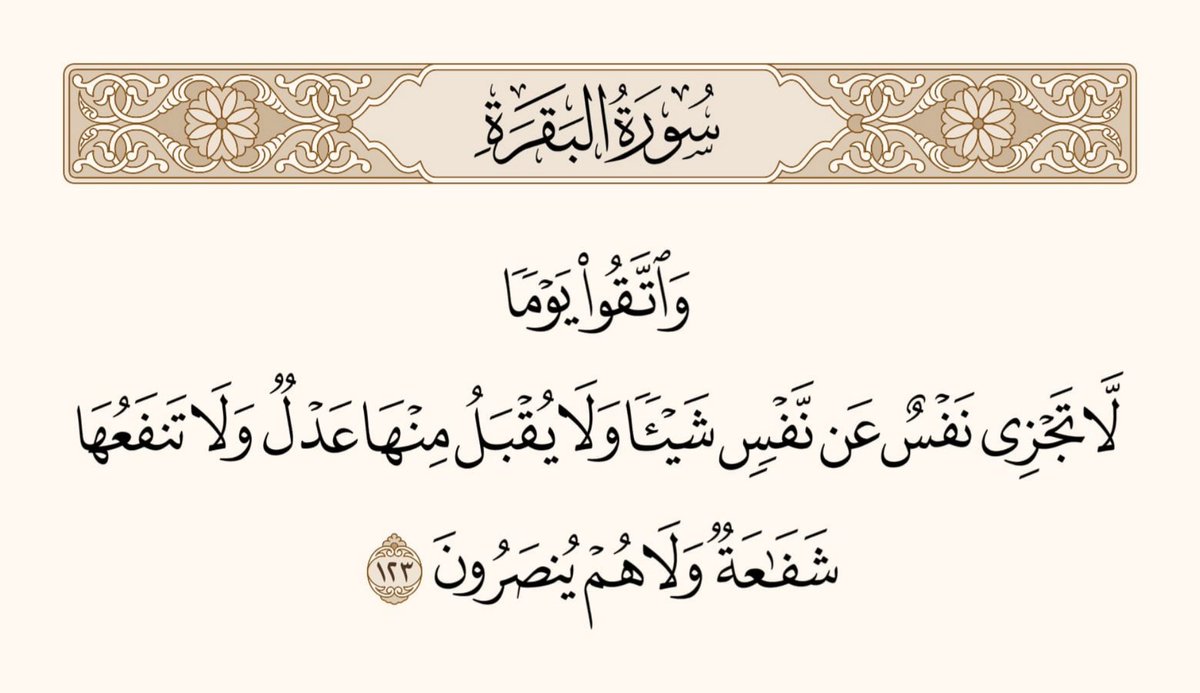 سُورَةُ البَقَرَةِ
وَٱتَّقُوا۟ يَوْمًا
لَّا تَجْزِى نَفْسٌ عَن نَّفْسٍ شَيْـًٔا وَلَا يُقْبَلُ مِنْهَا عَدْلٌ وَلَا تَنفَعُهَا
شَفَـٰعَةٌ وَلَا هُمْ يُنصَرُونَ ١٢٣